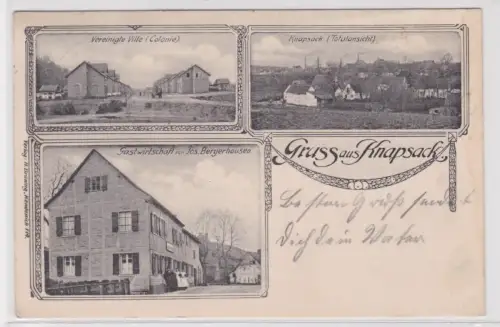 Vereinigte Ville (Colonie).
Knapsack (Totalansicht).
Gastwirtschaft von Jos. Bergerhausen
Gruss aus Knapsack
Besten Gruß sendet
Dich dein Vater